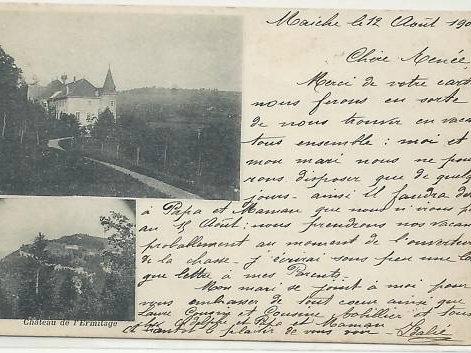 Maîche le 12 Août 190
Chère Renée
Merci de votre car
nous ferons en sorte
de nous trouver en vaca
tous ensemble : moi et
mon mari nous ne pou
rons disposer que de quel
jours. ainsi il faudra de
à Papa et Maman que nous n'irons p
au 15 Août : nous prendrons nos vacan
probablement au moment de l'ouvertur
de la chasse. j'écrirai sous peu une l
que lettre à mes Parents.
Mon mari se joint à moi pour
vous embrasser de tout cœur ainsi que
Cousin et Cousine et tous
et Papa et Maman
le plaisir de vous
Château de l'Ermitage